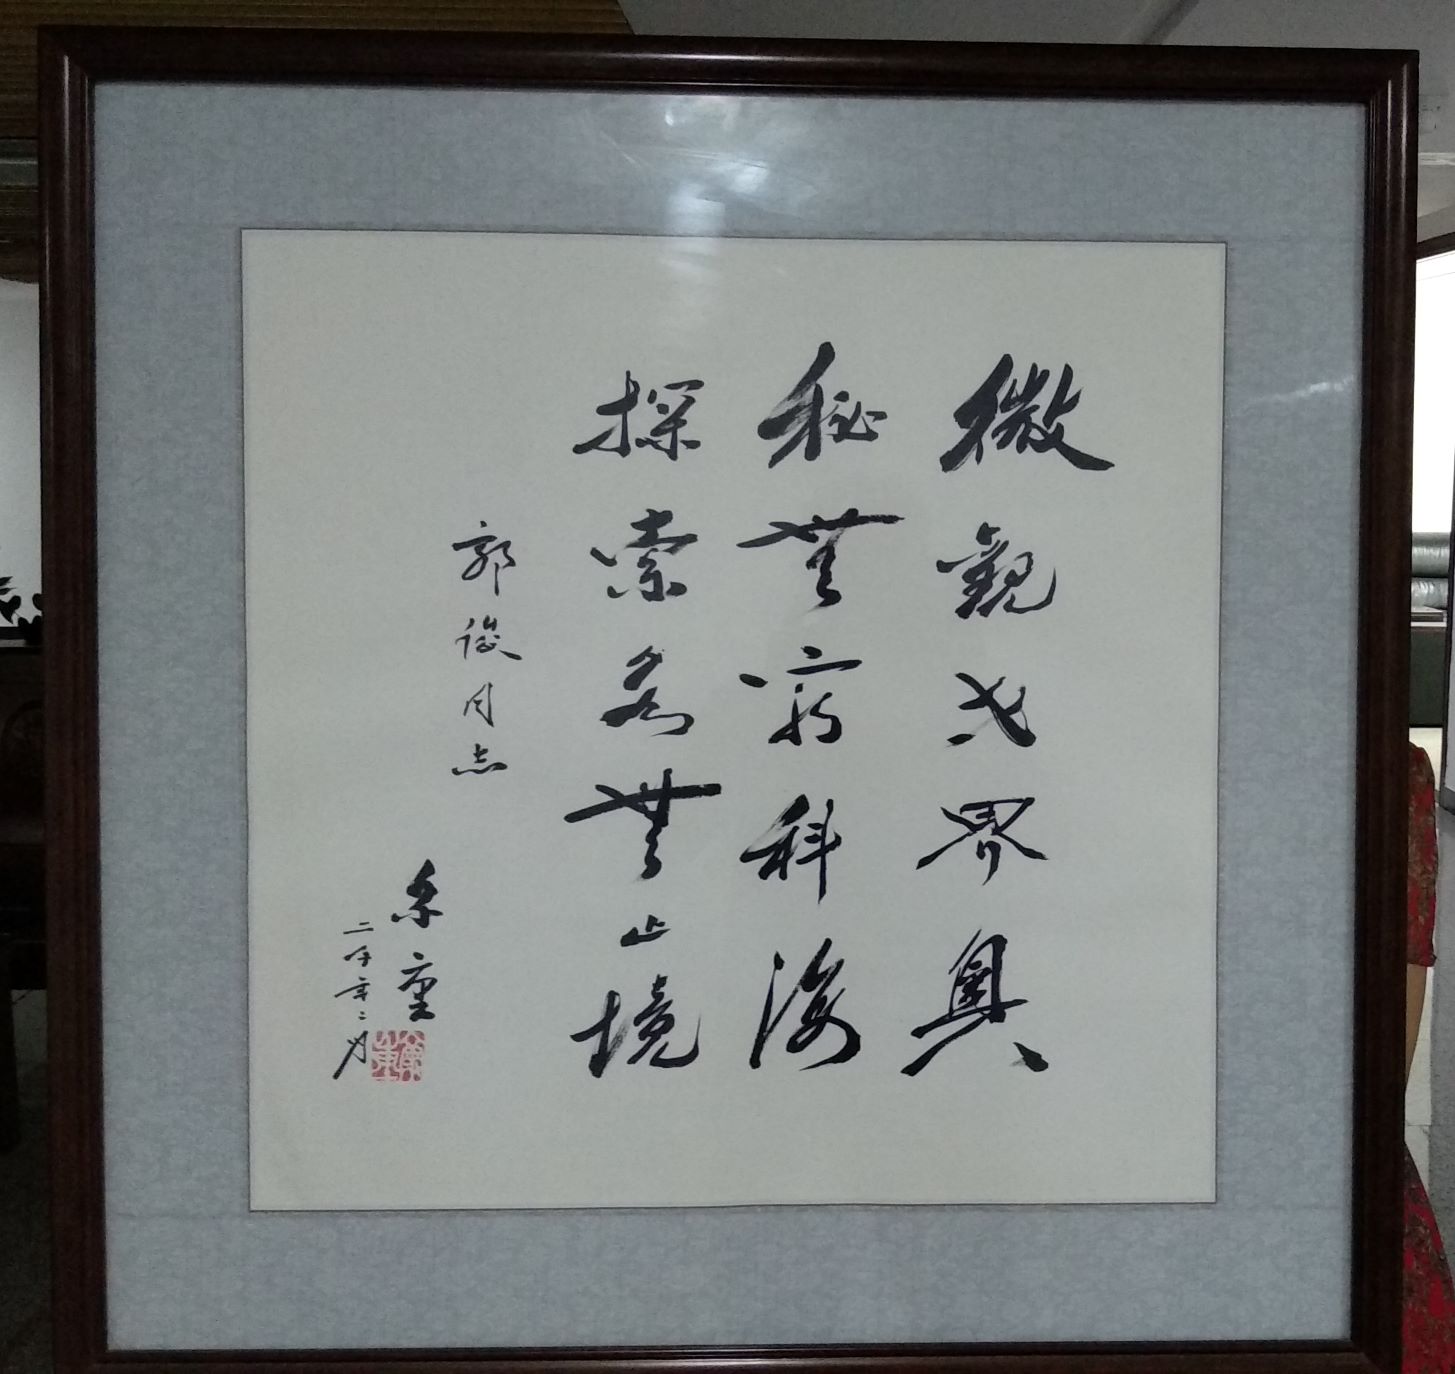 微觀世界奧
秘無窮科海
探索永無止境
郭俊同志
二千年二月